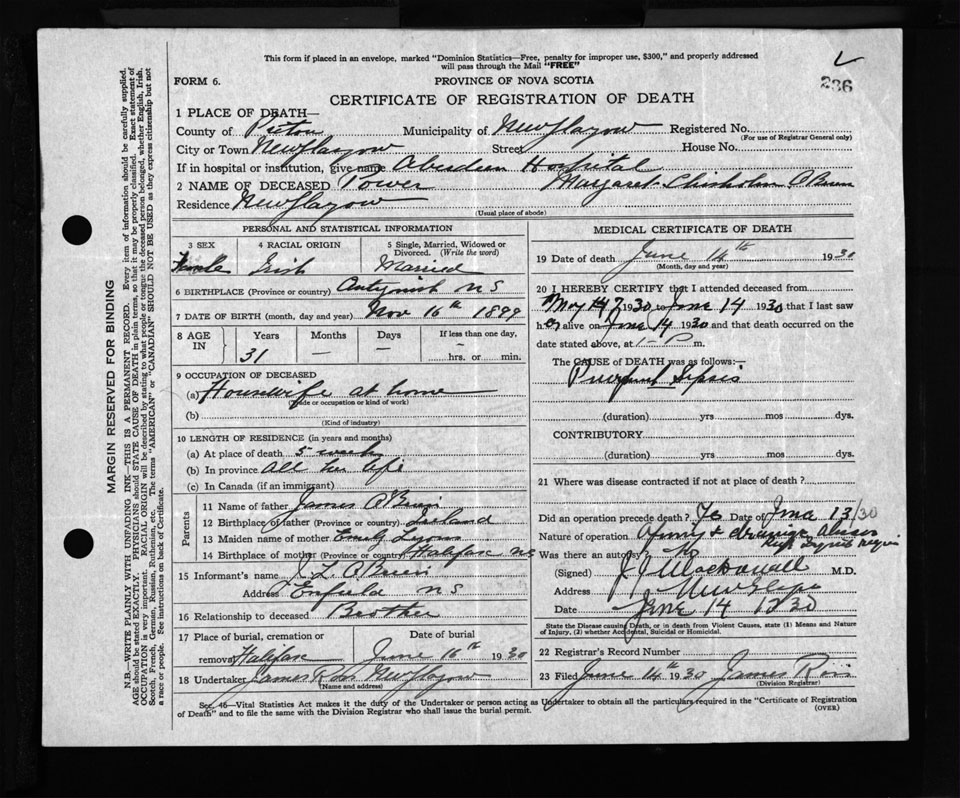 This form if placed in an envelope, marked "Dominion Statistics—Free, penalty for improper use, $300," and properly addressed
will pass through the Mail "FREE"
236
FORM 6.
PROVINCE OF NOVA SCOTIA
CERTIFICATE OF REGISTRATION OF DEATH
1 PLACE OF DEATH—
County of Pictou Municipality of New Glasgow Registered No.
(For use of Registrar General only)
City or Town New Glasgow Street House No.
If in hospital or institution, give name Aberdeen Hospital
2 NAME OF DECEASED Power Margaret Chisholm O'Brien
Residence New Glasgow
(Usual place of abode)
PERSONAL AND STATISTICAL INFORMATION
3 SEX 4 RACIAL ORIGIN 5 Single, Married, Widowed or Divorced. (Write the word)
Female Irish Married
6 BIRTHPLACE (Province or country) Antigonish NS
7 DATE OF BIRTH (month, day and year) Nov 16th 1899
8 AGE IN Years Months Days If less than one day,
31 — — hrs. or min.
9 OCCUPATION OF DECEASED
(a) Housewife at home
(Trade or occupation or kind of work)
(b)
(Kind of industry)
10 LENGTH OF RESIDENCE (in years and months)
(a) At place of death 5 weeks
(b) In province All her life
(c) In Canada (if an immigrant)
Parents
11 Name of father James O'Brien
12 Birthplace of father (Province or country) Ireland
13 Maiden name of mother Emily
14 Birthplace of mother (Province or country) Halifax NS
15 Informant's name J. L. O'Brien
Address Enfield NS
16 Relationship to deceased Brother
17 Place of burial, cremation or removal Halifax Date of burial June 16th 1930
18 Undertaker James Ross New Glasgow
(Name and address)
MEDICAL CERTIFICATE OF DEATH
19 Date of death June 14th 1930
(Month, day and year)
20 I HEREBY CERTIFY that I attended deceased from
May 1930 to June 14 1930 that I last saw
her alive on June 14 1930 and that death occurred on the
date stated above, at 1- P m.
The CAUSE OF DEATH was as follows:—
Puerperal Sepsis
(duration) yrs mos dys.
CONTRIBUTORY
(duration) yrs mos dys.
21 Where was disease contracted if not at place of death?
Did an operation precede death? Yes Date of June 13/30
Nature of operation Opening & drainage abscess
Was there an autopsy? No
(Signed) J J MacDonald M.D.
Address New Glasgow
Date June 14 1930
State the Disease causing Death, or in death from Violent Causes, state (1) Means and Nature
of Injury, (2) whether Accidental, Suicidal or Homicidal.
22 Registrar's Record Number
23 Filed June 14th 1930 James
(Division Registrar)
See 46—Vital Statistics Act makes it the duty of the Undertaker or person acting as Undertaker to obtain all the particulars required in the "Certificate of Registration
of Death" and to file the same with the Division Registrar who shall issue the burial permit.
(OVER)
MARGIN RESERVED FOR BINDING
N.B.—WRITE PLAINLY WITH UNFADING INK—THIS IS A PERMANENT RECORD. Every item of information should be carefully supplied.
AGE should be stated EXACTLY. PHYSICIANS should STATE CAUSE OF DEATH in plain terms, so that it may be properly classified. Exact statement of
OCCUPATION is very important. RACIAL ORIGIN will be described by stating to what people or tongue the deceased person belonged, whether English, Irish,
Scotch, French, German, Russian, Ruthenian, etc. The terms "AMERICAN" or "CANADIAN" SHOULD NOT BE USED as they express citizenship but not
a race or people. See instructions on back of Certificate.